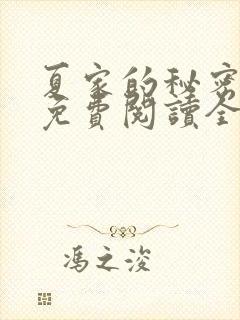 夏家的秘密
免費閱讀全
馮之浚